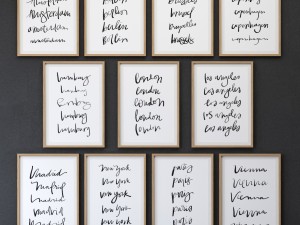 amsterdam
amsterdam
amsterdam
amsterdam
berlin
berlin
berlin
berlin
brussels
copenhagen
copenhagen
copenhagen
copenhagen
hamburg
hamburg
hamburg
hamburg
hamburg
london
london
london
london
london
los angeles
los angeles
los angeles
los angeles
los angeles
Madrid
madrid
madrid
madrid
madrid
new york
new york
new york
new york
new york
paris
paris
paris
paris
paris
Vienna
vienna
Vienna
vienna
vienna